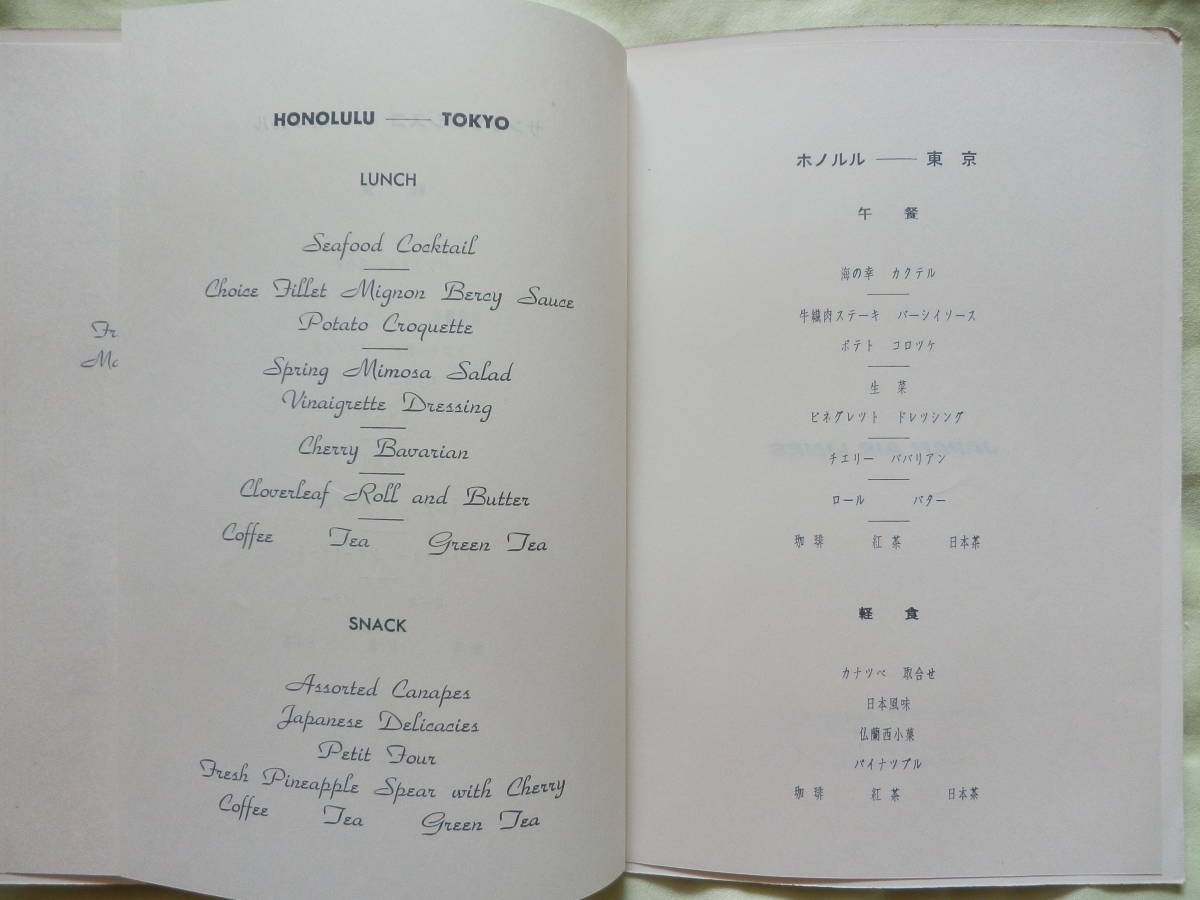 HONOLULU — TOKYO
LUNCH
Seafood Cocktail
Choice Fillet Mignon Bercy Sauce
Potato Croquette
Spring Mimosa Salad
Vinaigrette Dressing
Cherry Bavarian
Cloverleaf Roll and Butter
Coffee Tea Green Tea
SNACK
Assorted Canapes
Japanese Delicacies
Petit Four
Fresh Pineapple Spear with Cherry
Coffee Tea Green Tea
ホノルル — 東京
午餐
海の幸 カクテル
牛繊肉ステーキ バーシイソース
ポテト コロツケ
生菜
ビネグレツト ドレツシング
チエリー ババリアン
ロール バター
珈琲 紅茶 日本茶
軽食
カナツペ 取合せ
日本風味
仏蘭西小菓
パイナツプル
珈琲 紅茶 日本茶